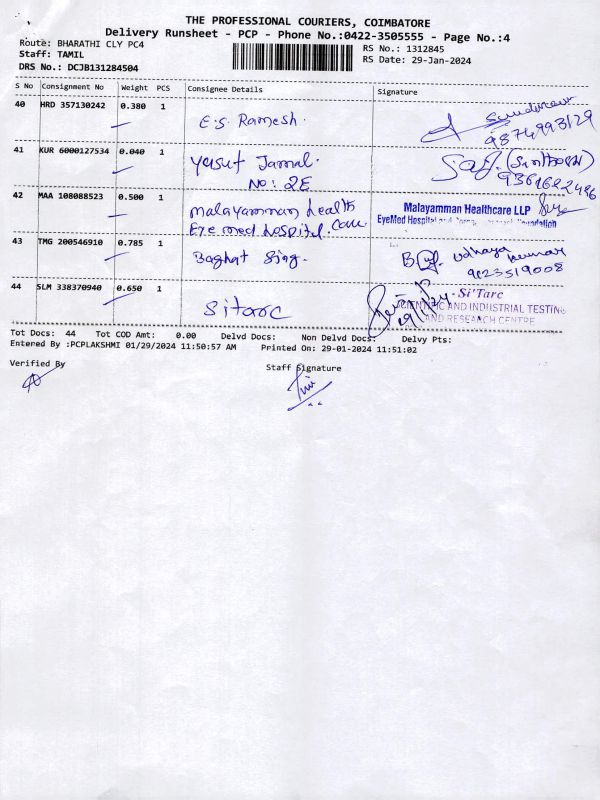 THE PROFESSIONAL COURIERS, COIMBATORE
Delivery Runsheet - PCP - Phone No.:0422-3505555 - Page No.:4
Route: BHARATHI CLY PC4
Staff: TAMIL
DRS No.: DCJB131284504
RS No.: 1312845
RS Date: 29-Jan-2024
S No Consignment No Weight PCS Consignee Details Signature
40 HRD 357130242 0.380 1 E.S. Ramesh.
9874993129
41 KUR 6000127534 0.040 1 Yusuf Jamal.
No: 2E
(Santhosh)
42 MAA 108088523 0.500 1 Malayamman health
Eye med hospital.com
Malayamman Healthcare LLP
EyeMed Hospital and Foundation
43 TMG 200546910 0.785 1 Baghat Sing.
Udhaya Kumar
9123519008
44 SLM 338370940 0.650 1 Sitarc
Si'Tarc
SCIENTIFIC AND INDUSTRIAL TESTING
AND RESEARCH CENTRE
29/1/24
Tot Docs: 44 Tot COD Amt: 0.00 Delvd Docs: Non Delvd Docs: Delvy Pts:
Entered By :PCPLAKSHMI 01/29/2024 11:50:57 AM Printed On: 29-01-2024 11:51:02
Verified By Staff Signature